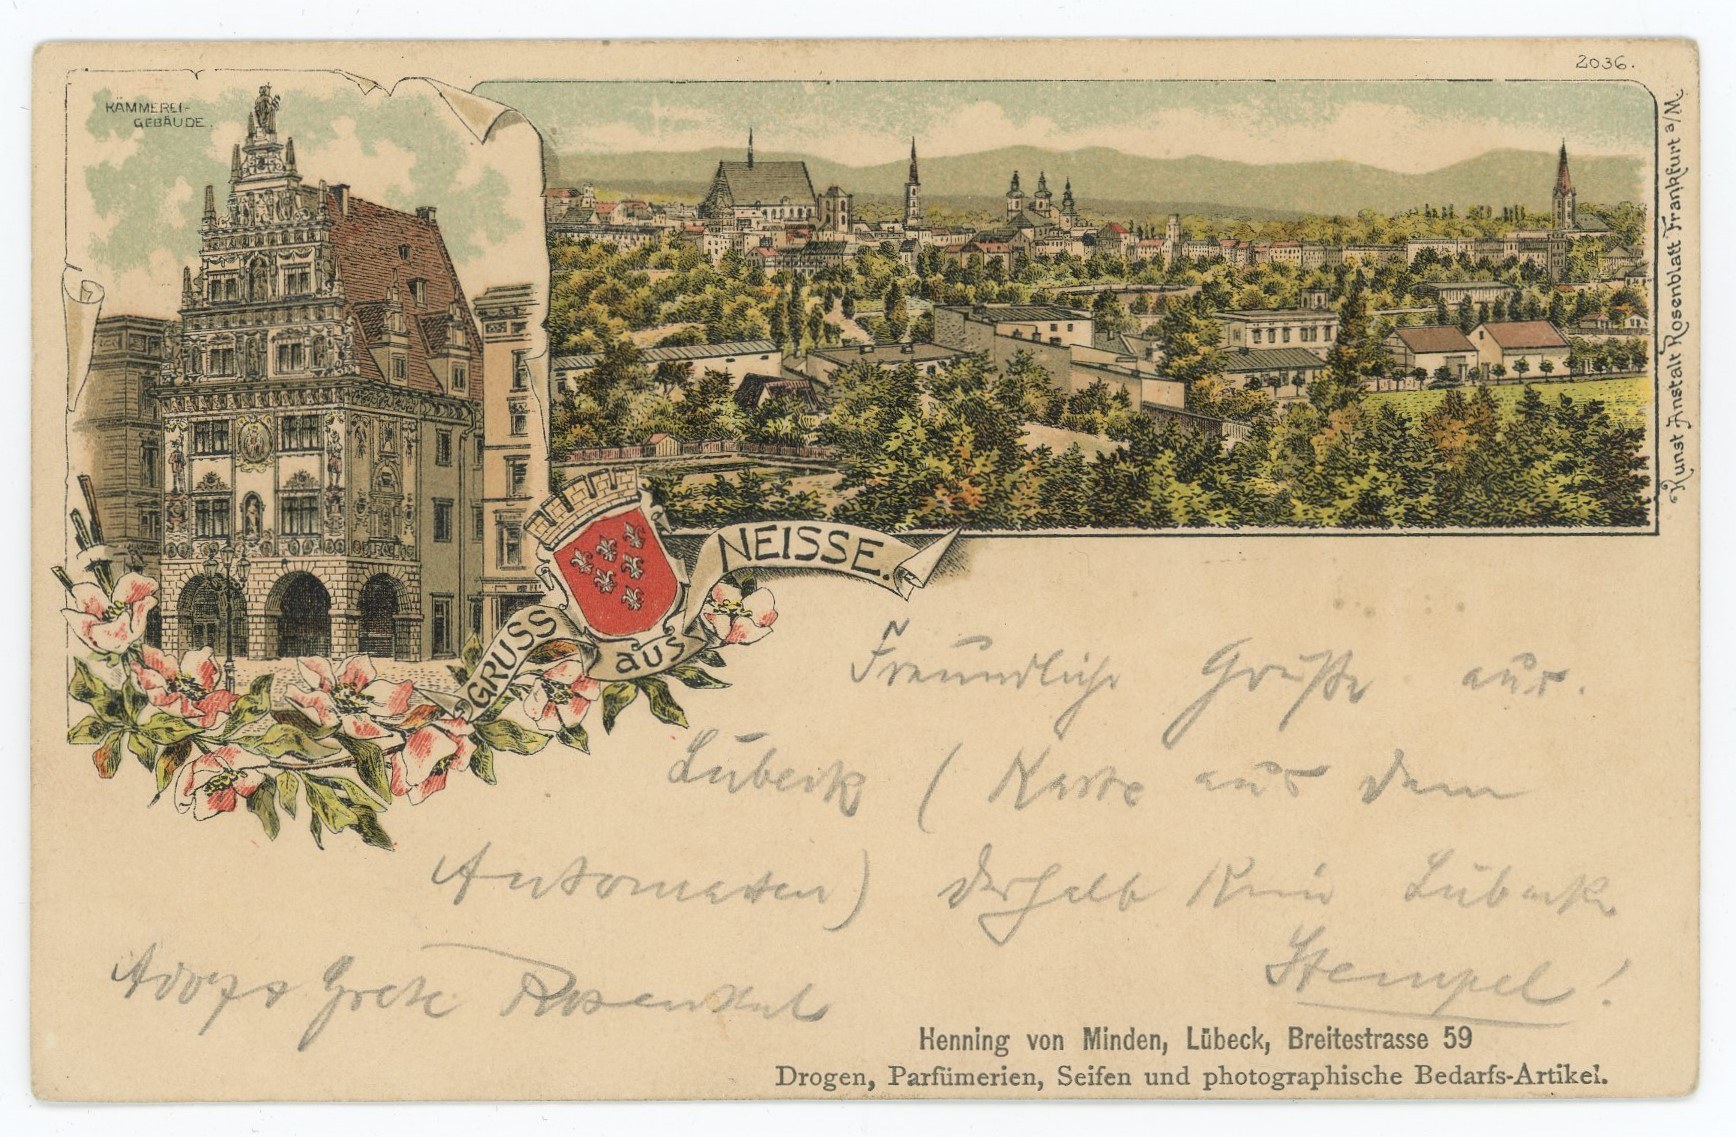 2036.
KÄMMEREI-
GEBÄUDE.
Kunst Anstalt Rosenblatt Frankfurt a/M.
GRUSS aus NEISSE.
Freundliche Grüße aus
Lübeck (Karte aus dem
Automaten) deshalb kein Lübecker
Stempel!
Adolf & Grete
Henning von Minden, Lübeck, Breitestrasse 59
Drogen, Parfümerien, Seifen und photographische Bedarfs-Artikel.